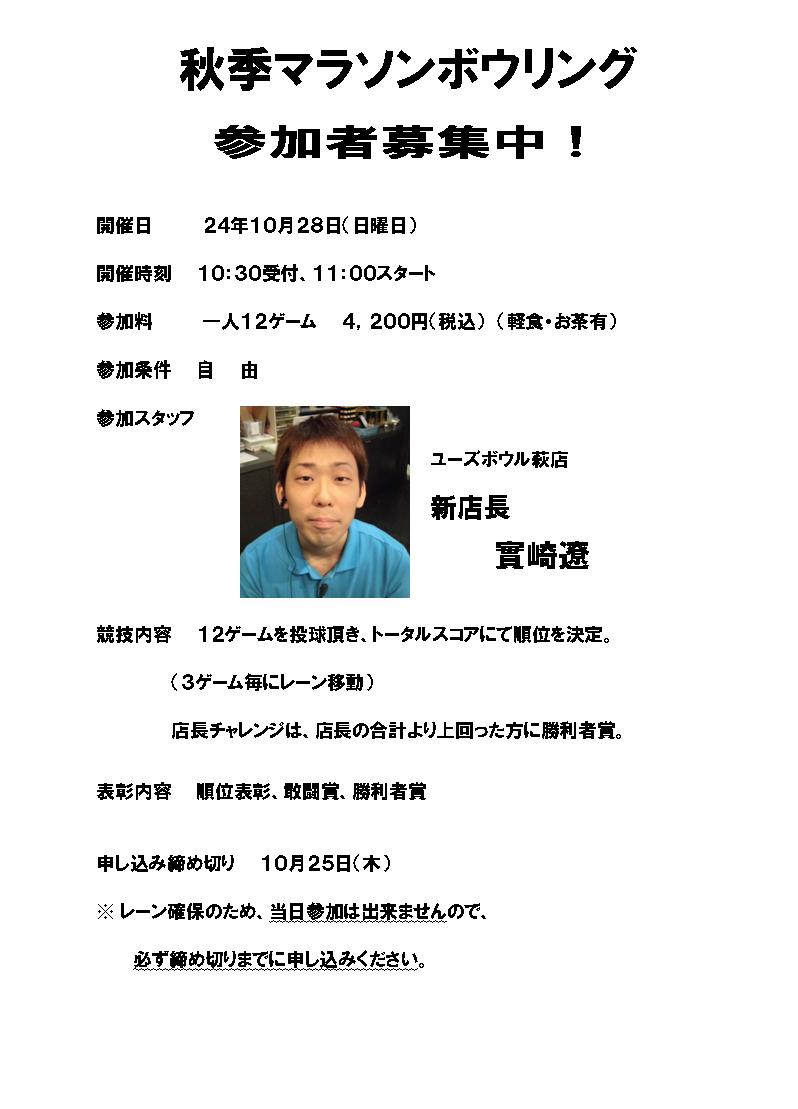 秋季マラソンボウリング
参加者募集中！
開催日　24年10月28日（日曜日）
開催時刻　10：30受付、11：00スタート
参加料　一人12ゲーム　4，200円（税込）（軽食・お茶有）
参加条件　自　由
参加スタッフ
ユーズボウル萩店
新店長
實崎遼
競技内容　12ゲームを投球頂き、トータルスコアにて順位を決定。
（3ゲーム毎にレーン移動）
店長チャレンジは、店長の合計より上回った方に勝利者賞。
表彰内容　順位表彰、敢闘賞、勝利者賞
申し込み締め切り　10月25日（木）
※ レーン確保のため、当日参加は出来ませんので、
必ず締め切りまでに申し込みください。